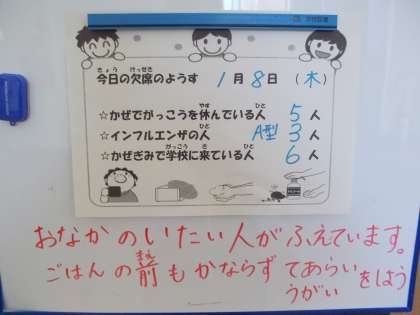 今日の欠席のようす 1月8日（木）
☆かぜでがっこうを休んでいる人 5人
☆インフルエンザの人 A型 3人
☆かぜぎみで学校に来ている人 6人
おなかのいたい人がふえています。
ごはんの前もかならず てあらい うがい をしよう